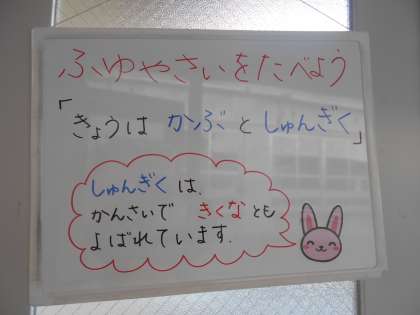 ふゆやさいをたべよう
「きょうは かぶ と しゅんぎく」
しゅんぎく は、
かんさいで きくな とも
よばれています.